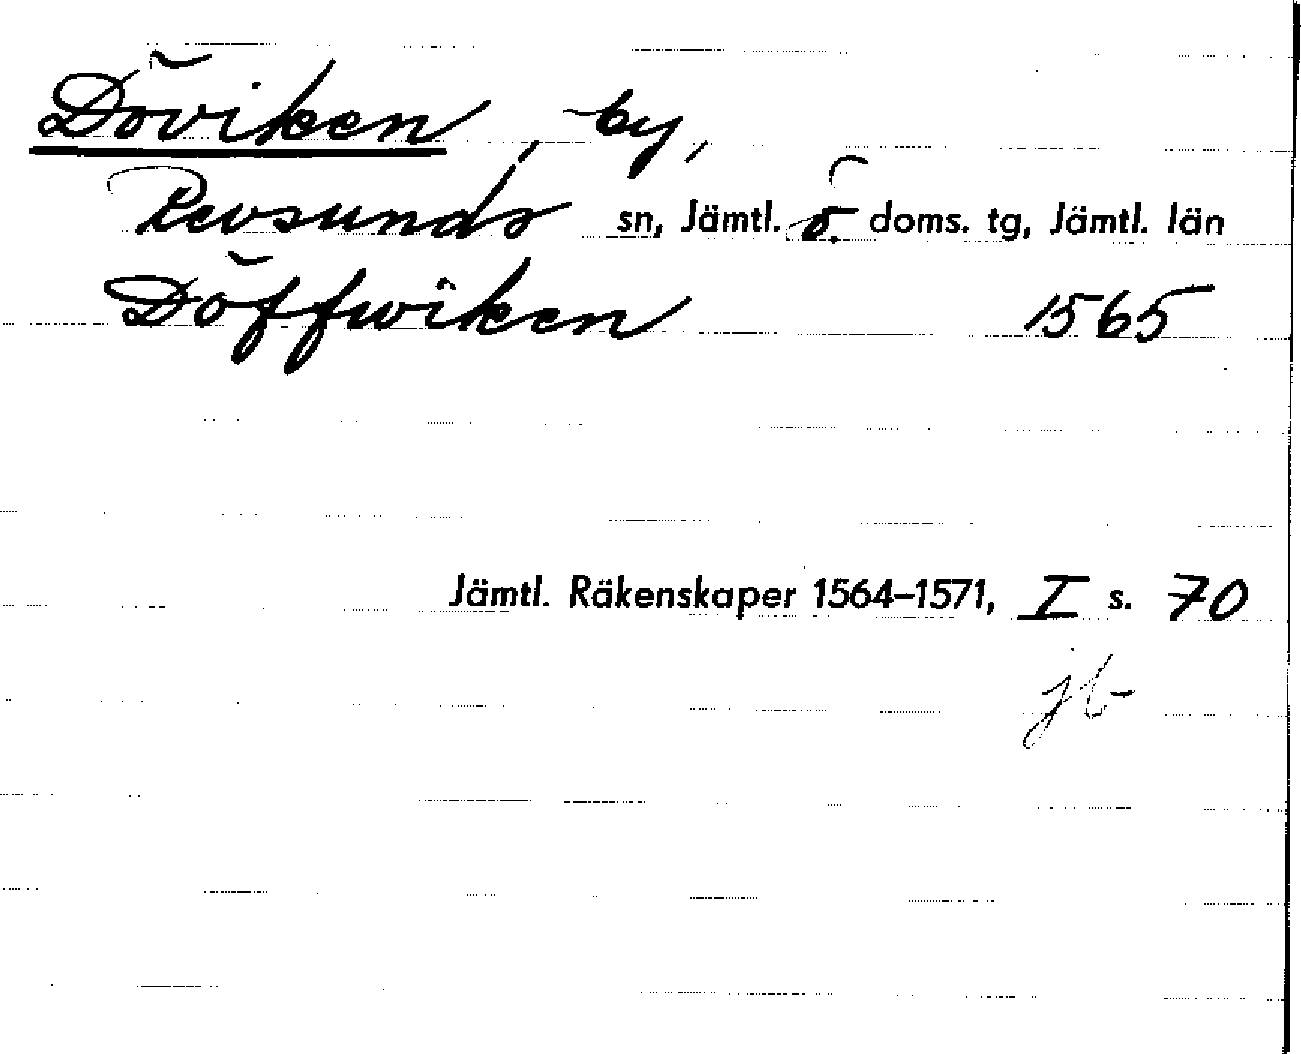 Döviken, by,
Revsunds sn, Jämtl. ö. doms. tg, Jämtl. län
Döffwiken 1565
Jämtl. Räkenskaper 1564–1571, I s. 70
jb